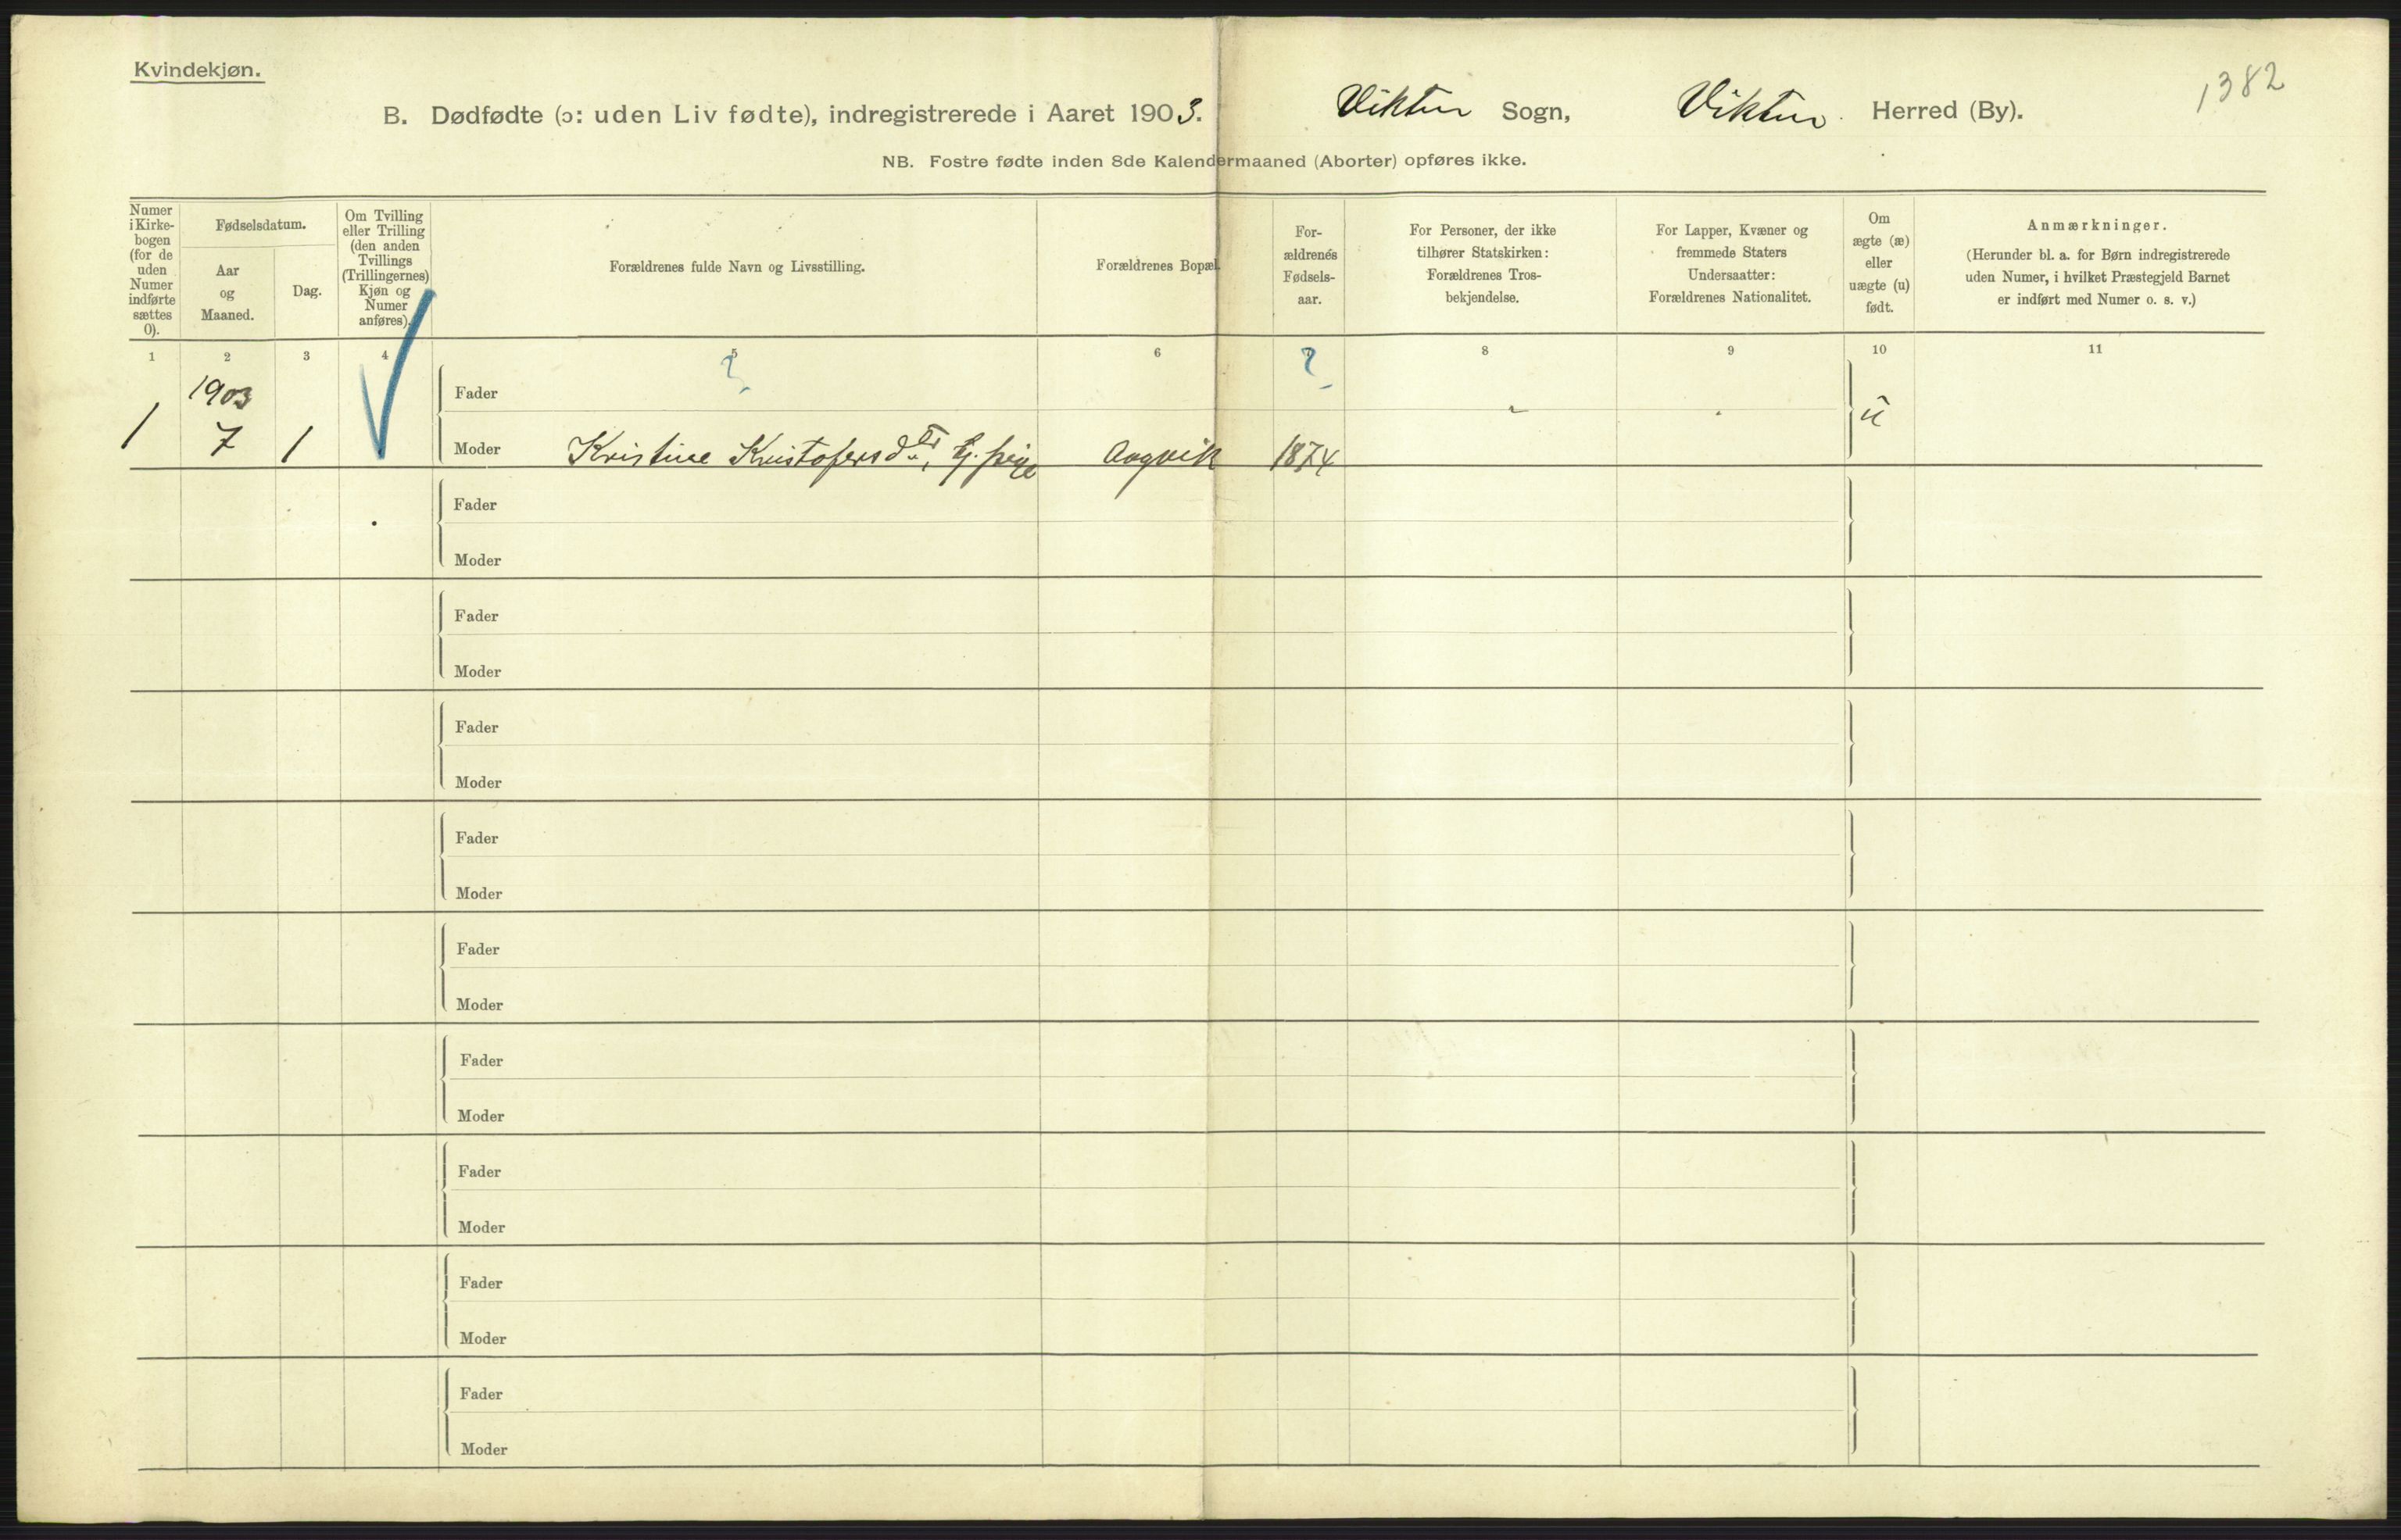 Kvindekjøn.
1382
B. Dødfødte (ɔ: uden Liv fødte), indregistrerede i Aaret 1903. Viktun Sogn, Viktun Herred (By).
NB. Fostre fødte inden 8de Kalendermaaned (Aborter) opføres ikke.
Numer i Kirke-bogen (for de uden Numer indførte sættes 0).
Fødselsdatum.
Aar og Maaned.
Dag.
Om Tvilling eller Trilling (den anden Tvillings (Trillingernes) Kjøn og Numer anføres).
Forældrenes fulde Navn og Livsstilling.
Forældrenes Bopæl.
For-ældrenes Fødsels-aar.
For Personer, der ikke tilhører Statskirken: Forældrenes Tros-bekjendelse.
For Lapper, Kvæner og fremmede Staters Undersaatter: Forældrenes Nationalitet.
Om ægte (æ) eller uægte (u) født.
Anmærkninger.
(Herunder bl. a. for Børn indregistrerede uden Numer, i hvilket Præstegjeld Barnet er indført med Numer o. s. v.)
1 2 3 4 5 6 7 8 9 10 11
1903
Fader ? ?
1 7 1 Moder Kristine Kristofersdtr, tj. pige Aagvik 1874 u
Fader
Moder
Fader
Moder
Fader
Moder
Fader
Moder
Fader
Moder
Fader
Moder
Fader
Moder
Fader
Moder
Fader
Moder